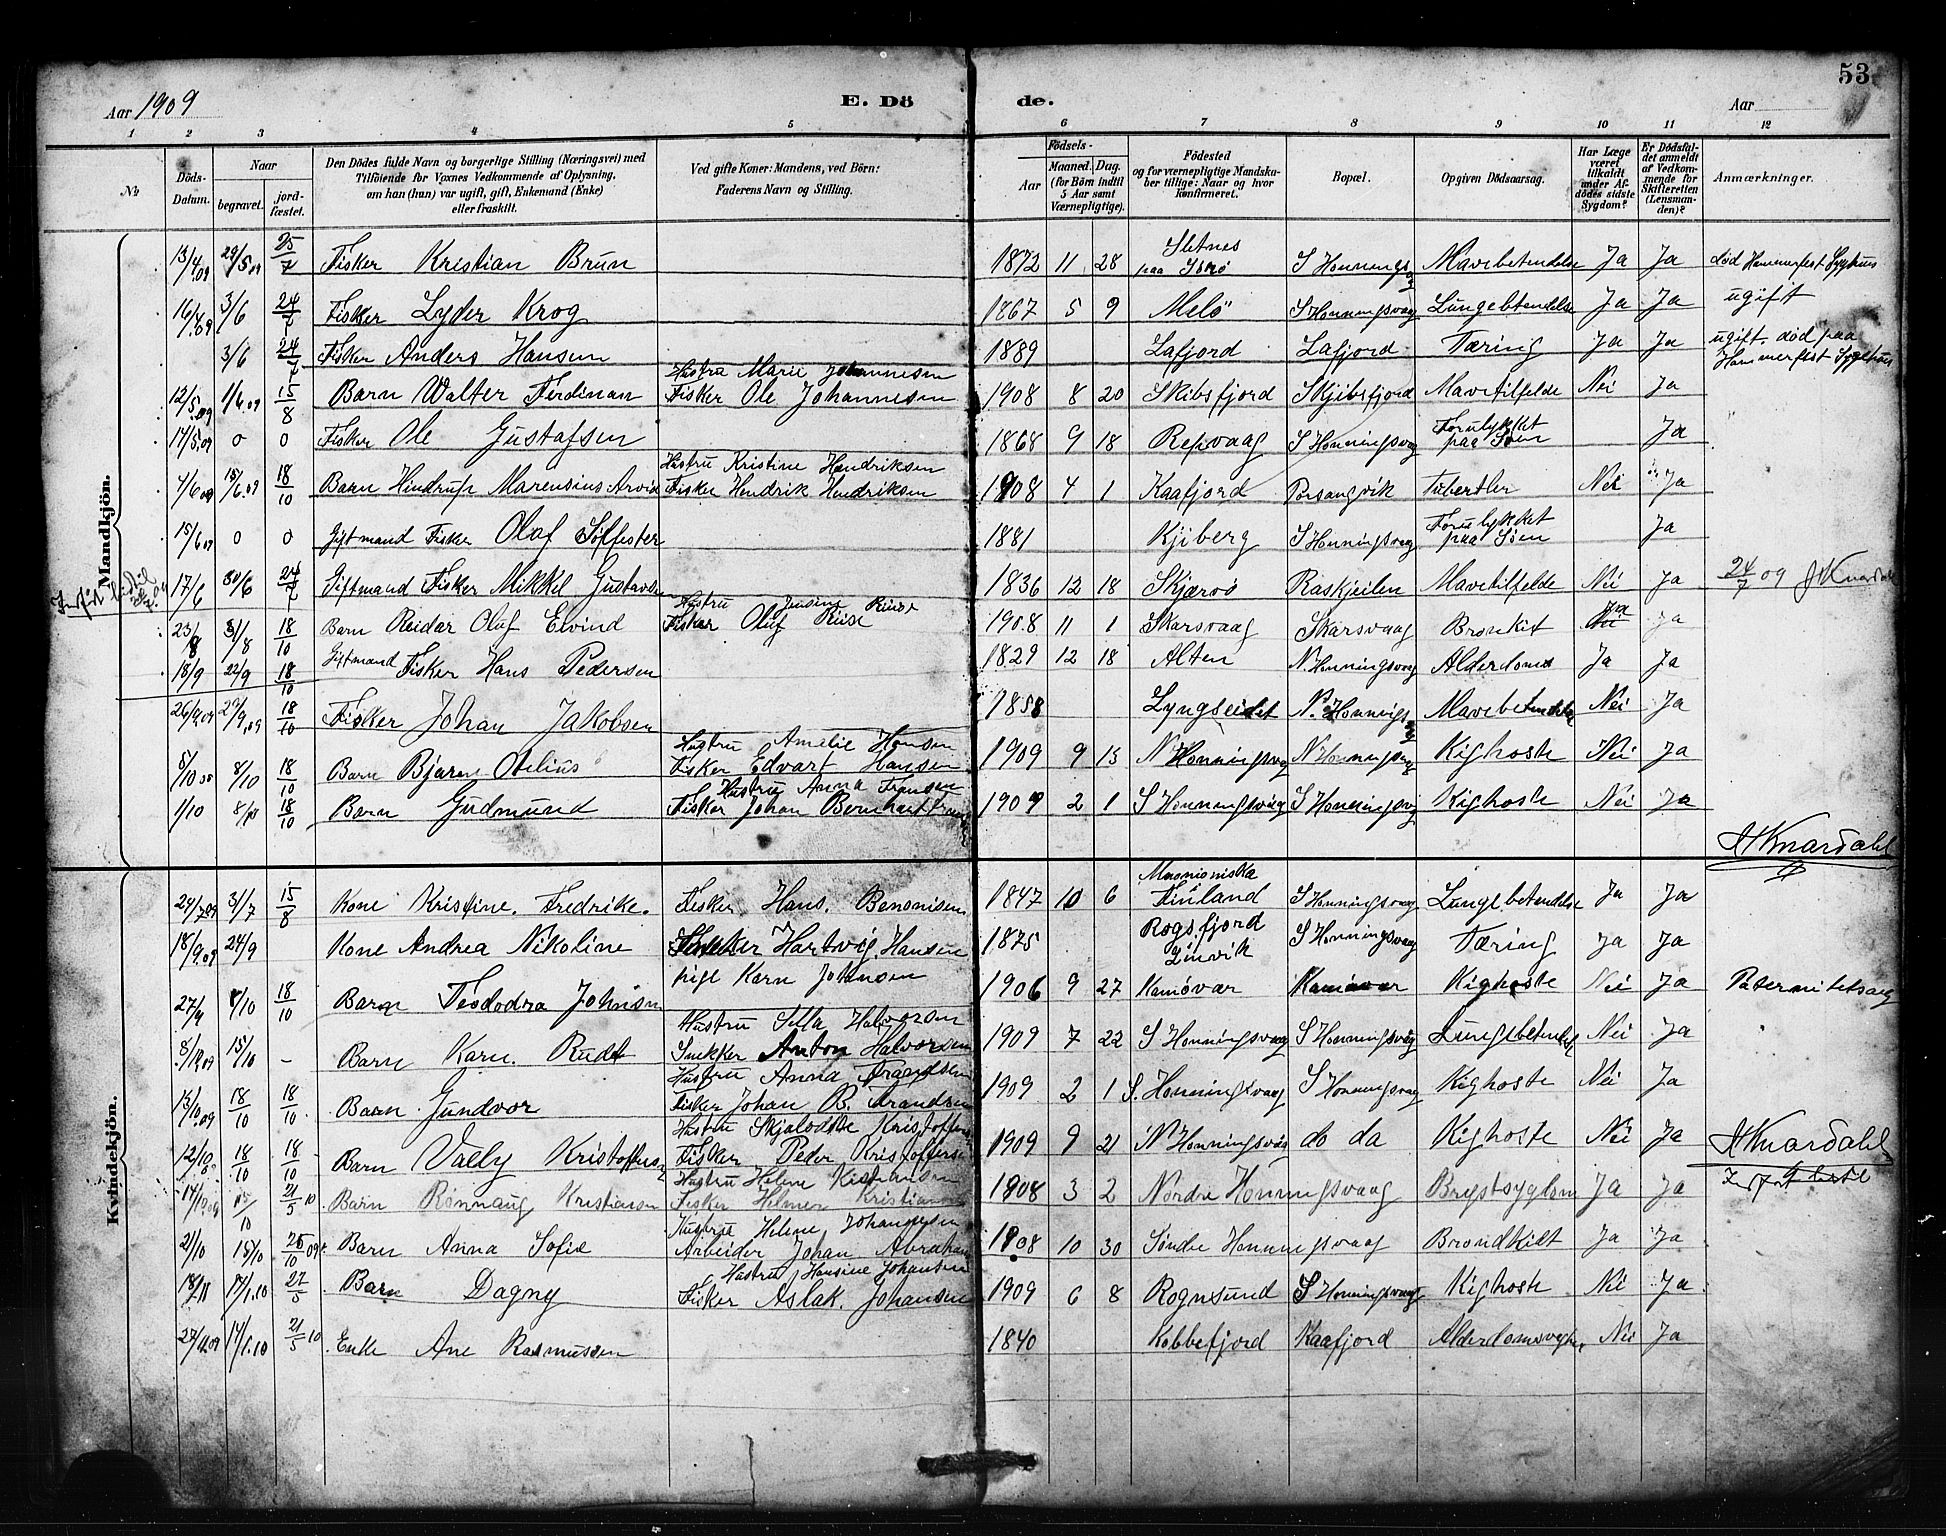 53
Aar 1909 E. Dö de. Aar
1 2 3 4 5 6 7 8 9 10 11 12
No
Döds-Datum.
Naar
begravet.
jord-fæstet.
Den Dödes fulde Navn og borgerlige Stilling (Næringsvei) med
Tilföiende for Voxnes Vedkommende af Oplysning,
om han (hun) var ugift, gift, Enkemand (Enke)
eller fraskilt.
Ved gifte Koner: Mandens, ved Börn:
Faderens Navn og Stilling.
Födsels-
Aar
Maaned. Dag.
(for Börn indtil
5 Aar samt
Værnepligtige).
Födested
og for værnepligtige Mandska-
ber tillige: Naar og hvor
konfirmeret.
Bopæl.
Opgiven Dödsaarsag.
Har Læge
været
tilkaldt
under Af-
dödes sidste
Sygdom?
Er Dödsfal-
det anmeldt
af Vedkom-
mende for
Skifteretten
(Lensman-
den)?
Anmærkninger.
Mandkjön.
13/4 09 29/5 09 25/7 Fisker Kristian Brun 1872 11 28 Sletnes paa S Honningsv Mavebetendelse Ja Ja död Hammerfest Sygehus
16/4 09 3/6 24/7 Fisker Lyder Krog 1867 5 9 Melö S Honningsvaag Lungebetendelse Ja Ja ugift
3/6 24/7 Fisker Anders Hansen 1889 Lafjord Lafjord Tæring Ja Ja ugift. död paa Hammerfest Sygehus
12/5 09 1/6 09 15/8 Barn Walter Ferdinan Hustru Marie Johannesen Fisker Ole Johannesen 1908 8 20 Skibsfjord Skjibsfjord Mavetilfelde Nei Ja
17/5 09 0 0 Fisker Ole Gustafsen 1868 9 18 Repvaag S Honningsvag Forulykket paa Söen Ja
4/6 09 18/6 09 18/10 Barn Hindrup Marensius Arvid Hustru Kristine Hendriksen Fisker Hendrik Hendriksen 1908 4 1 Kaafjord Porsangvik Tubertler Nei Ja
15/6 09 0 0 Giftmand Fisker Olaf Söffester 1881 Kjiberg S Honningsvag Forulykket paa Söen Ja
17/6 30/6 24/7 Giftmand Fisker Mikkel Gustavsen 1836 12 18 Skjærsö Raskjeilen Mavetilfelde Nei Ja 24/7 09 J Knardahl
23/8 31/8 18/10 Barn Reidar Olaf Eivind Hustru Jensine Riise Fisker Oluf Riise 1908 11 1 Skarsvaag Skarsvaag Bronkit Ja Ja
18/9 22/9 18/10 Giftmand Fisker Hans Pedersen 1829 12 18 Alten N. Honningsvag Alderdoms Ja Ja
26/9 09 29/9 09 18/10 Fisker Johan Jakobsen 1858 Lyngseidet N. Honnigsv Mavebetendelse Nei Ja
5/10 8/10 18/10 Barn Bjarn Otelius Hustru Amelie Hansen Fisker Edvart Hansen 1909 9 15 N Honningsvag N Honningsvag Kighoste Nei Ja
1/10 8/10 18/10 Barn Gudmund Hustru Anna Fransen Fisker Johan Bernhart 1909 2 1 S Honningsvåg S Honningsvåg Kighoste Nei Ja
J Knardahl
Kvindekjön.
24/7 09 31/7 15/8 Kone Kristine. Fredrike. Fisker Hans. Benonisen 1847 10 6 Finland S Honningsvaag Lungebetendelse Ja Ja
18/9 09 24/9 Kone Andrea Nikoline Snekker Hartvig. Hansen 1875 Rogsfjord S Honningsvaag Tæring Ja Ja
27/9 1/10 18/10 Barn Teododra Johnsen pige Karn Johansen 1906 9 27 Kamövær Kamövær Kighoste Nei Ja Paternitetsag
8/10 09 15/10 - Barn Karn. Rudt Hustru Silla Halvorsen Snekker Anton Halvorsen 1909 7 22 S Honningsvaag S Honningsvåg Lungebetendelse Nei Ja
13/10 09 18/10 18/10 Barn Gundvor Hustru Anna Frandsen Fisker Johan B. Frandsen 1909 2 1 S. Honningsvaag S Honningsvag Kighoste Nei Ja
12/10 18/10 18/10 Barn Vally Kristoffersen Hustru Skjalodste Kristoffersen Fisker Peder Kristoffersen 1909 9 21 N Honningsvåg do do Kighoste Nei Ja J Knardahl
14/10 09 15/10 21/5 10 Barn Rönnaug Kristiansen Hustru Helene Kistiansen Fisker Helmer Kristian 1908 3 2 Nordre Honningsvaag Brystsygdom Ja Ja
2/10 15/10 25/10 09 Barn Anna Sofie Hustru Helene Johannesen Arbeider Johan Abraham 1908 10 30 Söndre Honningsvaag Brondkitt Ja Ja
18/11 17/1.10 27/5 Barn Dagny Hustru Hansine Johansen Fisker Aslak. Johansen 1909 6 8 Rognsund S Honningsvag Kighoste Nei Ja
27/11 09 14/1.10 21/5 10 Enke Ane Rasmussen 1840 Kobbefjord Kaafjord Nei Ja